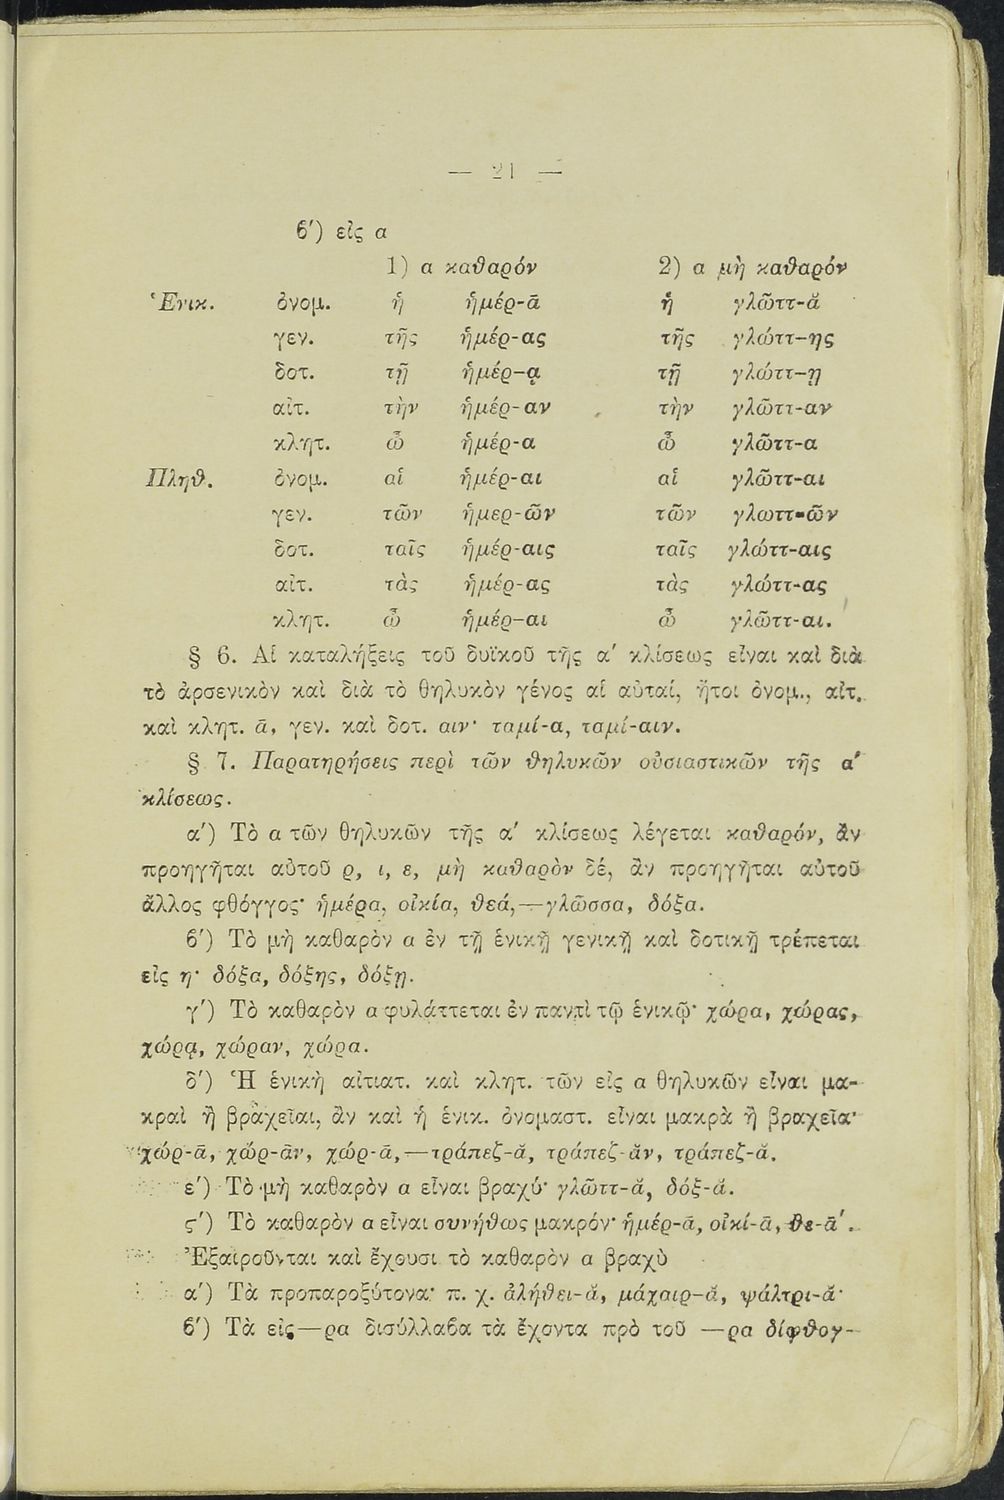 — 21 —
6') εἰς α
1) α καθαρόν 2) α μὴ καθαρόν
Ἑνικ. ὀνομ. ἡ ἡμέρ-ᾱ ἡ γλῶττ-ᾰ
γεν. τῆς ἡμέρ-ας τῆς γλώττ-ης
δοτ. τῇ ἡμέρ-ᾳ τῇ γλώττ-ῃ
αἰτ. τὴν ἡμέρ-αν τὴν γλῶττ-αν
κλητ. ὦ ἡμέρ-α ὦ γλῶττ-α
Πληθ. ὀνομ. αἱ ἡμέρ-αι αἱ γλῶττ-αι
γεν. τῶν ἡμερ-ῶν τῶν γλωττ-ῶν
δοτ. ταῖς ἡμέρ-αις ταῖς γλώττ-αις
αἰτ. τὰς ἡμέρ-ας τὰς γλώττ-ας
κλητ. ὦ ἡμέρ-αι ὦ γλῶττ-αι.
§ 6. Αἱ καταλήξεις τοῦ δυϊκοῦ τῆς α' κλίσεως εἶναι καὶ διὰ
τὸ ἀρσενικὸν καὶ διὰ τὸ θηλυκὸν γένος αἱ αὐταί, ἤτοι ὀνομ., αἰτ.
καὶ κλητ. ᾱ, γεν. καὶ δοτ. αιν· ταμί-α, ταμί-αιν.
§ 7. Παρατηρήσεις περὶ τῶν θηλυκῶν οὐσιαστικῶν τῆς α'
κλίσεως.
α') Τὸ α τῶν θηλυκῶν τῆς α' κλίσεως λέγεται καθαρόν, ἂν
προηγῆται αὐτοῦ ρ, ι, ε, μὴ καθαρὸν δέ, ἂν προηγῆται αὐτοῦ
ἄλλος φθόγγος· ἡμέρα, οἰκία, θεά,—γλῶσσα, δόξα.
6') Τὸ μὴ καθαρὸν α ἐν τῇ ἑνικῇ γενικῇ καὶ δοτικῇ τρέπεται
εἰς η· δόξα, δόξης, δόξῃ.
γ') Τὸ καθαρὸν α φυλάττεται ἐν παντὶ τῷ ἑνικῷ· χώρα, χώρας,
χώρᾳ, χώραν, χώρα.
δ') Ἡ ἑνικὴ αἰτιατ. καὶ κλητ. τῶν εἰς α θηλυκῶν εἶναι μα-
κραὶ ἢ βραχεῖαι, ἂν καὶ ἡ ἑνικ. ὀνομαστ. εἶναι μακρὰ ἢ βραχεῖα·
χώρ-ᾱ, χώρ-ᾱν, χώρ-ᾱ,—τράπεζ-ᾰ, τράπεζ-ᾰν, τράπεζ-ᾰ.
ε') Τὸ μὴ καθαρὸν α εἶναι βραχύ· γλῶττ-ᾰ, δόξ-ᾰ.
ς') Τὸ καθαρὸν α εἶναι συνήθως μακρόν· ἡμέρ-ᾱ, οἰκί-ᾱ, θε-ᾱ́.
Ἐξαιροῦνται καὶ ἔχουσι τὸ καθαρὸν α βραχὺ
α') Τὰ προπαροξύτονα· π. χ. ἀλήθει-ᾰ, μάχαιρ-ᾰ, ψάλτρι-ᾰ·
6') Τὰ εἰς—ρα δισύλλαβα τὰ ἔχοντα πρὸ τοῦ —ρα δίφθογ-